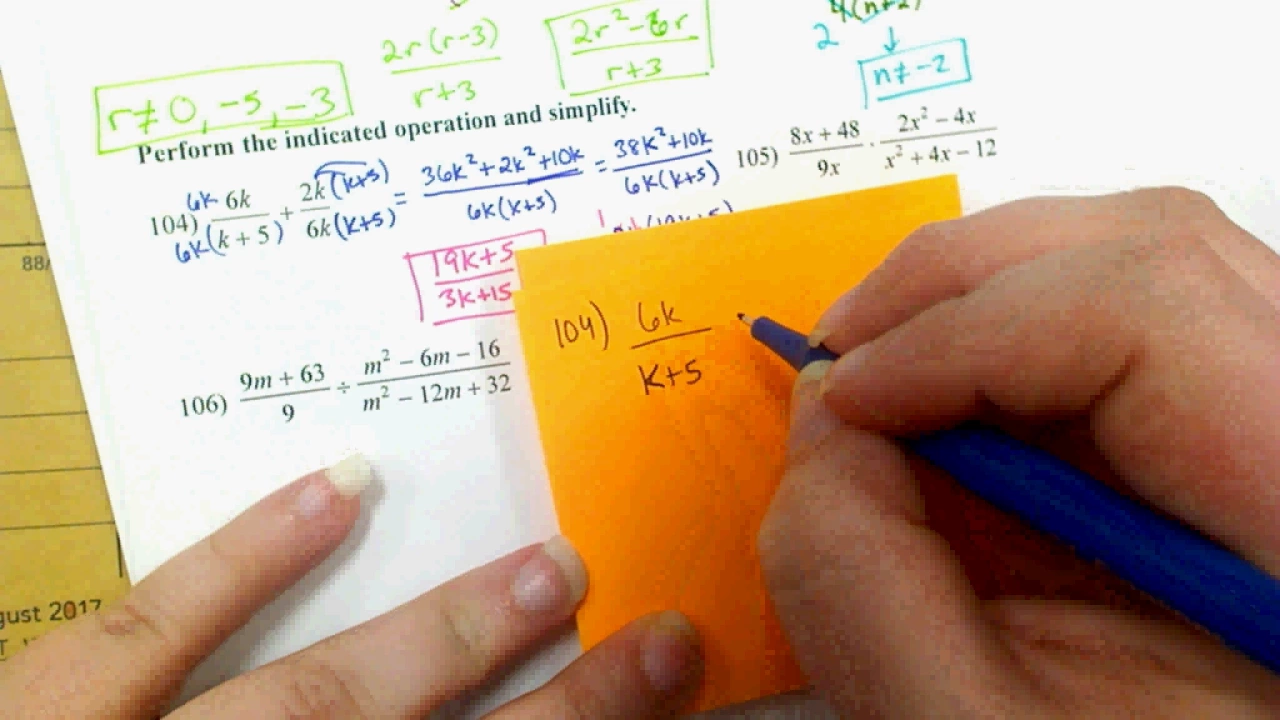 2r(r-3)/r+3
2r²-6r/r+3
4(n+2)
2
r≠0, -5, -3
n≠-2
Perform the indicated operation and simplify.
104) 6k 6k/6k(k + 5) + 2k(k+5)/6k(k+5) = 36k²+2k²+10k/6k(k+5) = 38k²+10k/6k(k+5)
105) 8x + 48/9x · 2x² − 4x/x² + 4x − 12
19k+5/3k+15
106) 9m + 63/9 ÷ m² − 6m − 16/m² − 12m + 32
104) 6k/k+5
88/
gust 2017